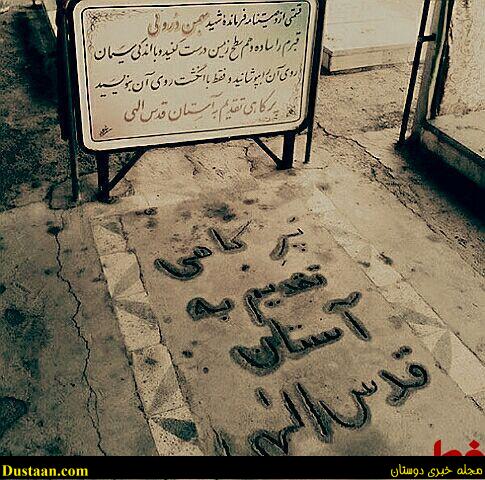 قسمتی از وصیتنامه فرمانده شهید بهمن درولی
قبرم را ساده و هم سطح زمین درست کنید و با اندکی سیمان
روی آن را بپوشانید و فقط با انگشت روی آن بنویسید
پر کاهی تقدیم به آستان قدس الهی
پر کاهی
تقدیم به
آستان
قدس الهی
Dustaan.com
مجله خبری دوستان